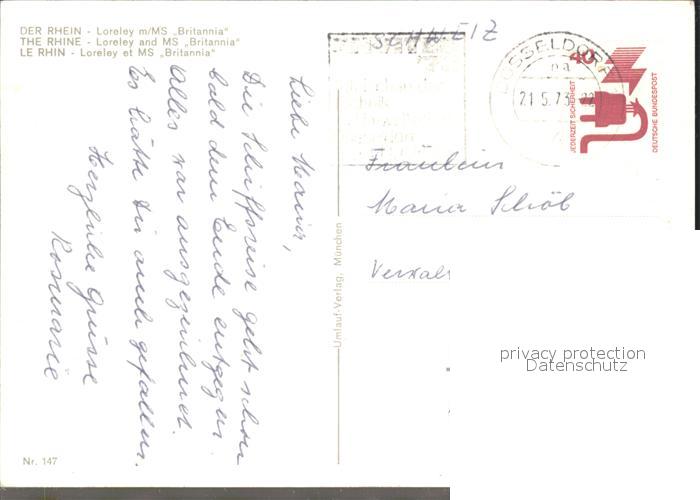 DER RHEIN - Loreley m/MS „Britannia“
THE RHINE - Loreley and MS „Britannia“
LE RHIN - Loreley et MS „Britannia“
Liebe Maria,
Die Schiffsreise geht schon
bald dem Ende entgegen.
Alles war ausgezeichnet.
Es hätte Dir auch gefallen.
Herzliche Grüsse
Rosmarie
Nr. 147
Umlauf-Verlag, München
SCHWEIZ
DÜSSELDORF
21.5.73
40
JEDERZEIT SICHERHEIT
DEUTSCHE BUNDESPOST
Fräulein
Maria Schöb
Verwal
privacy protection
Datenschutz